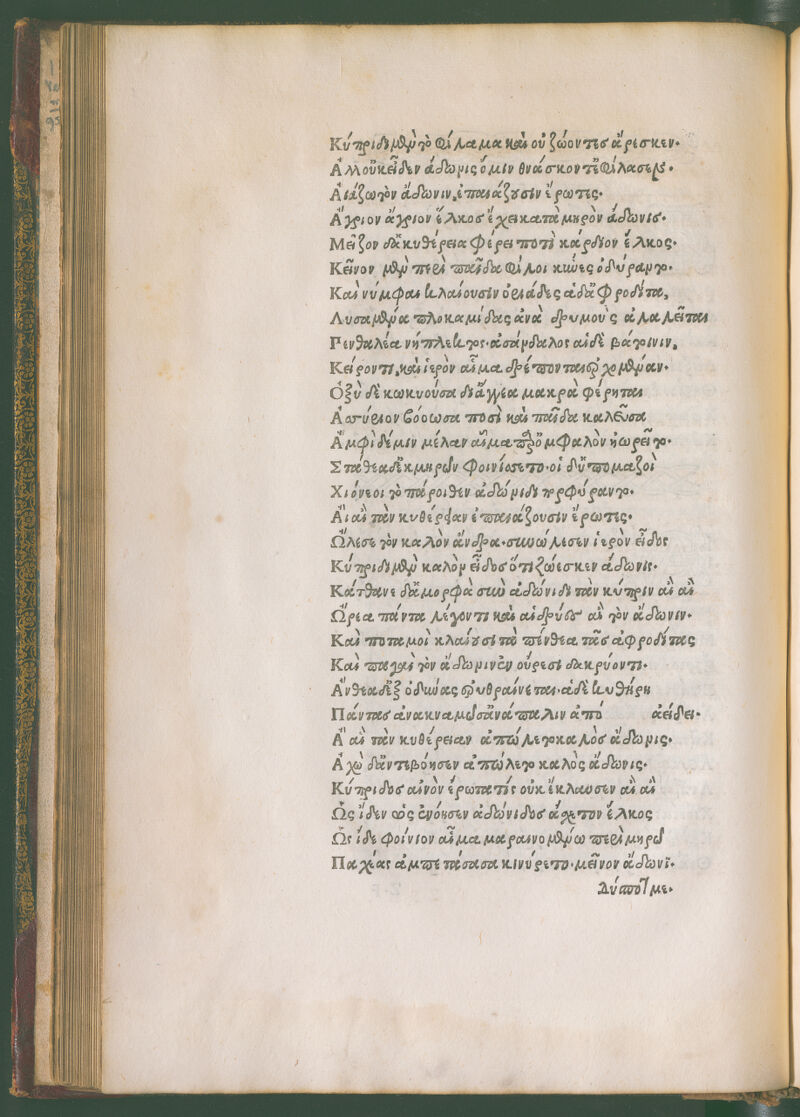 Κύπριδι μὲν τὸ φίλαμα καὶ οὐ ζώοντες ἀρέσκεν·
Ἀλλ' οὐκ εἶδεν ἄδωνις ὅ μιν θνάσκοντ' ἐφίλασεν·
Αἰάζω τὸν ἄδωνιν, ἐπαιάζουσιν ἔρωτες·
Ἄγριον ἄγριον ἕλκος ἔχει κατὰ μηρὸν ἄδωνις·
Μεῖζον δ' ἁ κυθέρεια φέρει ποτὶ κάρδιον ἕλκος·
Κεῖνον μὲν περὶ παῖδα φίλοι κύνες ὀδύραντο·
Καὶ νύμφαι κλαίουσιν ὀρειάδες ἁ δ' ἀφροδίτα,
Λυσαμένα πλοκαμίδας ἀνὰ δρυμοὺς ἀλάληται
Πενθαλέα νήπλεκτος·ἀσάνδαλος αἱ δὲ βάτοι νιν,
Κείροντι, καὶ ἱερὸν αἷμα δρέπονται ἐρχομέναν·
Ὀξὺ δὲ κωκυούσα δι' ἄγγεα μακρὰ φέρηται
Ἀσσύριον βοόωσα πόσὶ καὶ παῖδα καλεῦσα
Ἀμφὶ δέ μιν μέλαν αἷμα παρ' ὀμφαλὸν ἠωρεῖτο·
Στάθεα δ' ἐκ μηρῶν φοινίσσετο·οἱ δ' ὑπομαζοὶ
Χιόνεοι τὸ πάροιθεν ἀδώνιδι πορφύραντο·
Αἰαῖ τὰν κυθέρειαν ἐπαιάζουσιν ἔρωτες·
Ὤλεσε τὸν καλὸν ἄνδρα·σὺν ὤλεσεν ἱερὸν εἶδος
Κύπριδι μὲν καλὸν εἶδος ὅτι ζώεσκεν ἄδωνις·
Κάτθανε δ' ἁ μορφὰ σὺν ἀδώνιδι τὰν κύπριν αἲ αἲ
Ὤρεα πάντα λέγοντι καὶ αἱ δρύες αἲ τὸν ἄδωνιν·
Καὶ ποταμοὶ κλαίουσι τὰ πένθεα τᾶς ἀφροδίτας
Καὶ παγαὶ τὸν ἄδωνιν ἐν οὔρεσι δακρύοντι·
Ἄνθεα δ' ἐξ ὀδύνας ἐρυθραίνεται·ἁ δὲ κυθήρη
Πάντας ἀνακναμὼς ἀνὰ πάλιν ἀπὸ ἀείδει·
Ἀ αἲ τὰν κυθέρειαν ἀπώλετο καλὸς ἄδωνις·
Ἀχὼ δ' ἀντεβόησεν ἀπώλετο καλὸς ἄδωνις·
Κύπριδος αἰνὸν ἔρωτα τίς οὐκ ἔκλαυσεν αἲ αἲ
Ὡς ἴδεν ὡς ἐνόησεν ἀδώνιδος ἄσχετον ἕλκος
Ὡς ἴδε φοίνιον αἷμα μαραινομένῳ περὶ μηρῷ
Παχέας ἀμπετάσασα κινύρετο·μεῖνον ἄδωνι·
Δύσποτμε·